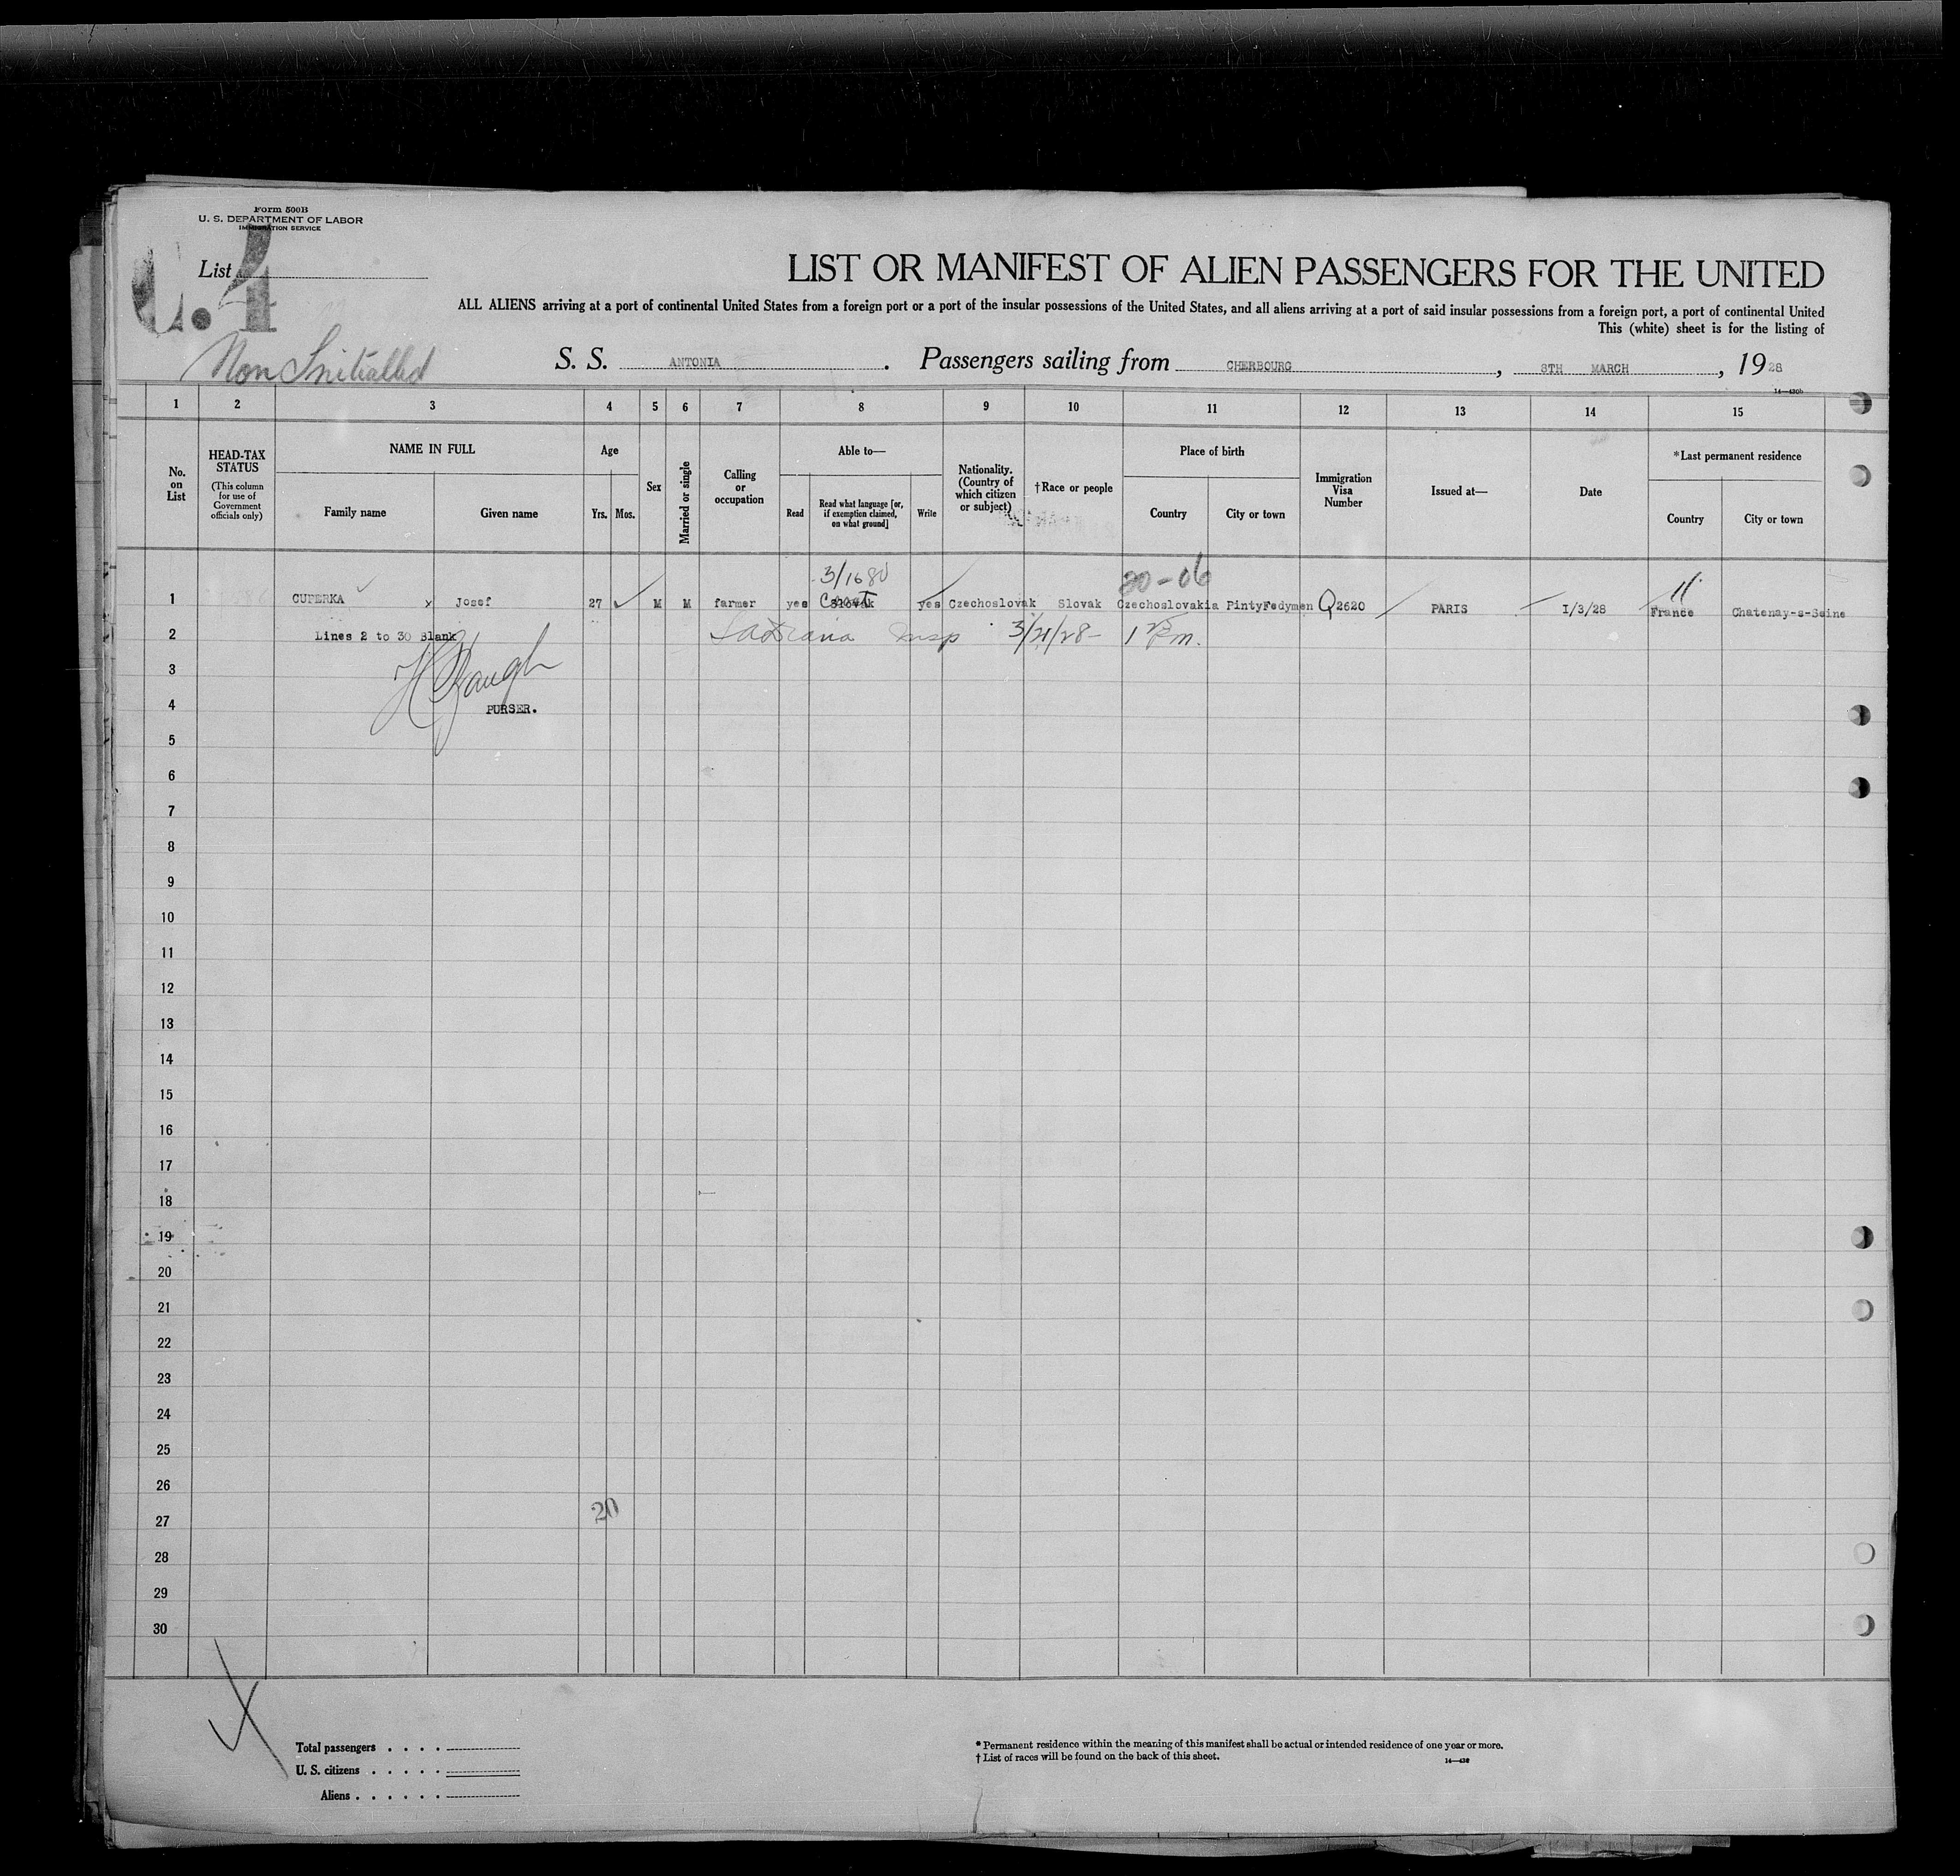 Form 500B
U. S. DEPARTMENT OF LABOR
IMMIGRATION SERVICE
List
4
Non Initialled
LIST OR MANIFEST OF ALIEN PASSENGERS FOR THE UNITED
ALL ALIENS arriving at a port of continental United States from a foreign port or a port of the insular possessions of the United States, and all aliens arriving at a port of said insular possessions from a foreign port, a port of continental United
This (white) sheet is for the listing of
S. S. ANTONIA. Passengers sailing from CHERBOURG, 8TH MARCH, 1928
1 2 3 4 5 6 7 8 9 10 11 12 13 14 15
No. on List
HEAD-TAX STATUS
(This column for use of Government officials only)
NAME IN FULL
Family name
Given name
Age
Yrs. Mos.
Sex
Married or single
Calling or occupation
Able to—
Read
Read what language [or, if exemption claimed, on what ground]
Write
Nationality. (Country of which citizen or subject)
†Race or people
Place of birth
Country
City or town
Immigration Visa Number
Issued at—
Date
*Last permanent residence
Country
City or town
3/16 80
20-06
1 CUPERKA x Josef 27 M M farmer yes Slovak yes Czechoslovak Slovak Czechoslovakia PintyFedymen Q2620 PARIS 1/3/28 France Chatenay-s-Seine
2 Lines 2 to 30 Blank Insp 3/21/28-
3
4 PURSER.
5
6
7
8
9
10
11
12
13
14
15
16
17
18
19
20
21
22
23
24
25
26
20
27
28
29
30
Total passengers . . . .
U. S. citizens . . . . .
Aliens . . . . . .
* Permanent residence within the meaning of this manifest shall be actual or intended residence of one year or more.
† List of races will be found on the back of this sheet.